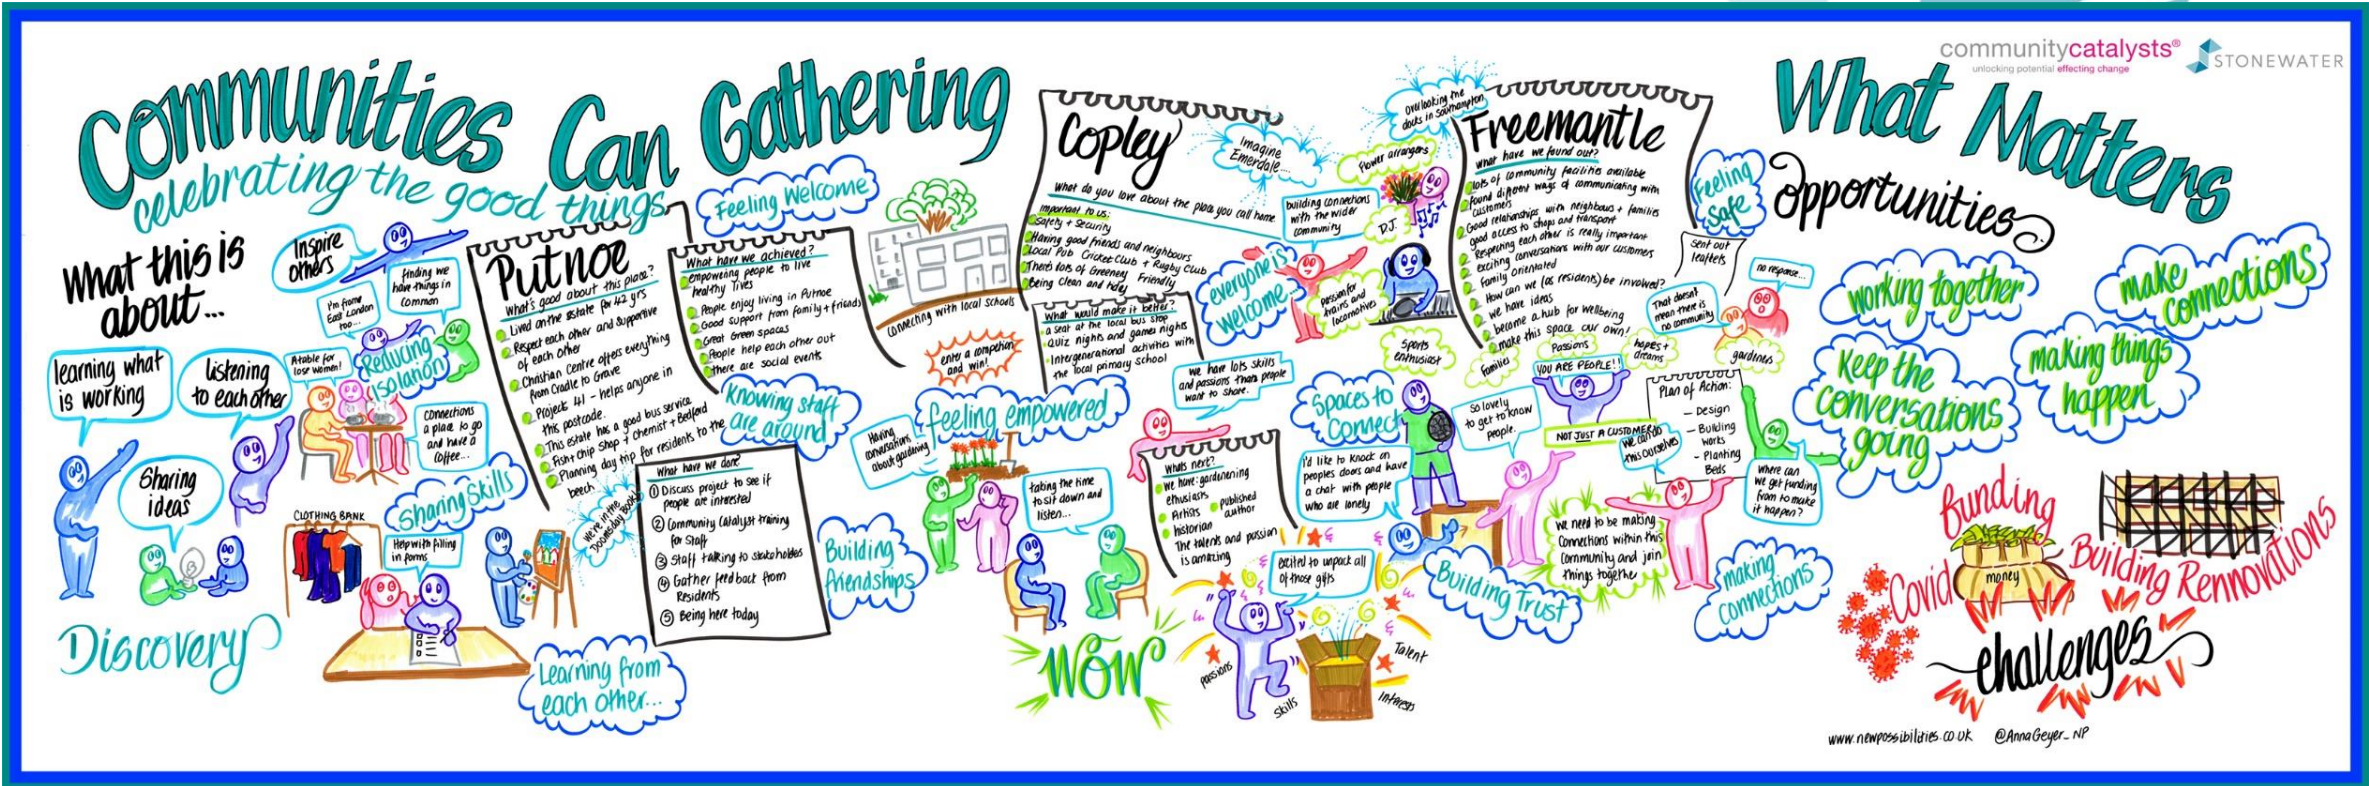 communitycatalysts®
unlocking potential effecting change
STONEWATER
Communities Can Gathering
celebrating the good things
What this is
about...
Inspire
others
finding we
have things in
common
I'm from
East London
too...
Reducing
Isolation
A table for
lose women!
learning what
is working
listening
to each other
Connections
a place to go
and have a
coffee...
Sharing
ideas
Discovery
CLOTHING BANK
Sharing Skills
Help with filling
in forms
Learning from
each other...
Putnoe
What's good about this place?
Lived on the estate for 42 yrs
Respect each other and supportive
of each other
Christian Centre offers everything
from Cradle to Grave
Project 41 - helps anyone in
this postcode.
This estate has a good bus service
Fish + chip shop + chemist + Bedford
Planning day trip for residents to the
beech
We're in the
Doomsday Book!
Feeling Welcome
What have we achieved?
empowering people to live
healthy lives
People enjoy living in Putnoe
Good support from family + friends
Great Green spaces
People help each other out
there are social events
Knowing staff
are around
What have we done?
① Discuss project to see if
people are interested
② Community Catalyst training
for Staff
③ Staff talking to stakeholdes
④ Gather feedback from
Residents
⑤ Being here today
Building
friendships
connecting with local schools
enter a competion
and win!
Having
conversations
about gardening
feeling empowered
taking the time
to sit down and
listen...
WOW
Copley
Imagine
Emerdale....
What do you love about the place you call home
Important to us:
Safety + Security
Having good friends and neighbours
Local Pub Cricket Club + Rugby Club
There's lots of Greenery Friendly
Being Clean and tidy
What would make it better?
a seat at the local bus stop
Quiz nights and games nights
Intergenerational activities with
the local primary school
building connections
with the wider
community
everyone is
welcome
we have lots skills
and passions thats people
want to share.
Whats next?
We have: gardenening
ethusiasts
Artists
published
author
historian
The talents and passion
is amazing
excited to unpack all
of those gifts
passions
Skills
Talent
Interests
overlooking the
docks in Southampton
Flower arrangers
D.J.
passion for
trains and
locomotives
Sports
enthusiast
Spaces to
Connect
I'd like to knock on
peoples doors and have
a chat with people
who are lonely
Freemantle
What have we found out?
lots of community facilities available
found different ways of communicating with
customers
Good relationships with neighbours + families
good access to shops and transport
Respecting each other is really important
exciting conversations with our customers
family orientated
How can we (as residents) be involved?
we have ideas
become a hub for wellbeing
make this space our own!
Feeling
Safe
Sent out
leaflets
no response...
That doesn't
mean there is
no community
Families
Passions
hopes +
dreams
gardiners
YOU ARE PEOPLE!!
NOT JUST A CUSTOMER
So lovely
to get to know
people.
we can do
this ourselves
Plan of Action:
- Design
- Building
works
- Planting
Beds
where can
we get funding
from to make
it happen?
Building Trust
we need to be making
Connections within this
Community and join
things together
making
connections
What Matters
opportunities
working together
make
connections
Keep the
conversations
going
making things
happen
funding
money
Covid
Building Rennovations
challenges
www.newpossibilities.co.uk @AnnaGeyer_NP